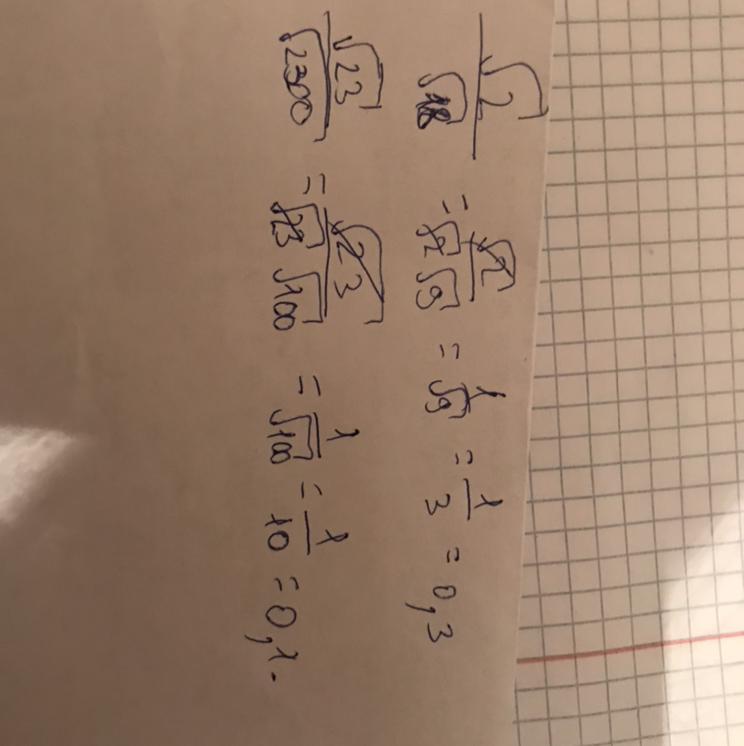 √2/√18 = √2/√2√9 = 1/√9 = 1/3 = 0,3
√23/√2300 = √23/√23√100 = 1/√100 = 1/10 = 0,1.